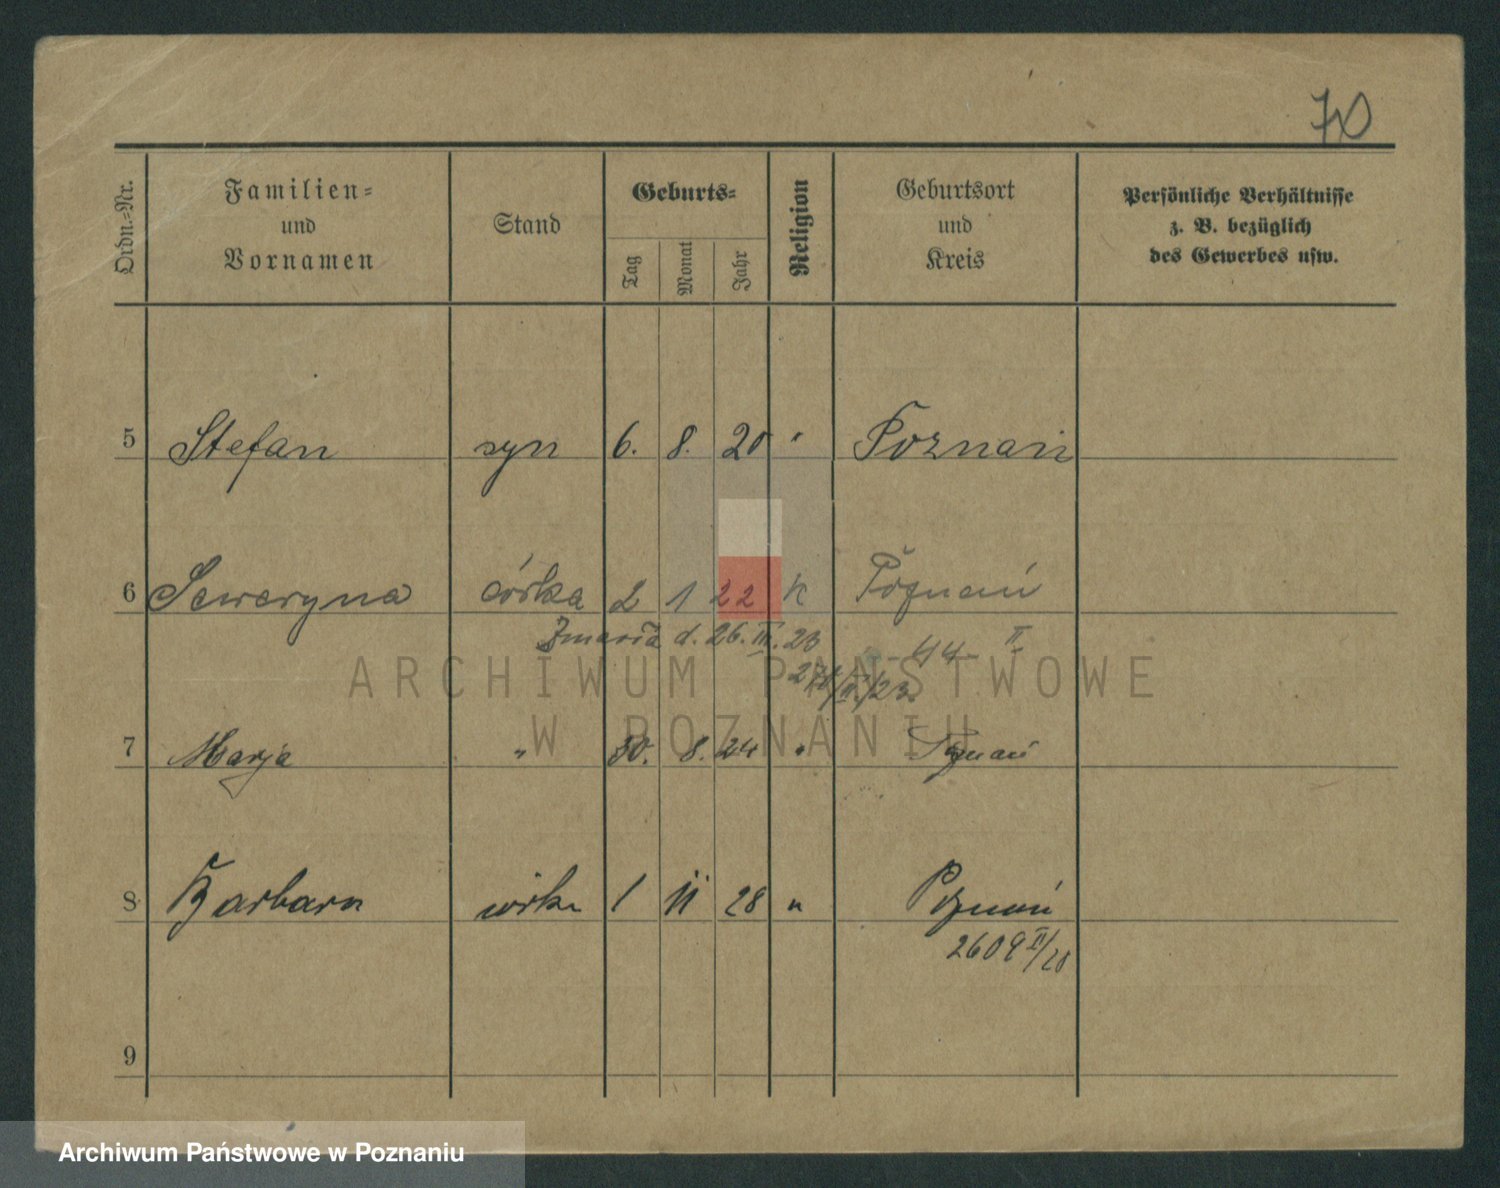 70
Ordn.-Nr. Familien- und Vornamen Stand Geburts- Tag Monat Jahr Religion Geburtsort und Kreis Persönliche Verhältnisse z. B. bezüglich des Gewerbes usw.
5 Stefan syn 6. 8. 20 " Poznań
6 Seweryna córka 2 1 22 K Poznań
Zmarła d. 26. III. 23
44 II
ARCHIWUM PAŃSTWOWE
W POZNANIU
7 Marja " 30. 8. 24 " Poznań
8 Barbara córka 1 11 28 " Poznań
2609 II/28
9
Archiwum Państwowe w Poznaniu